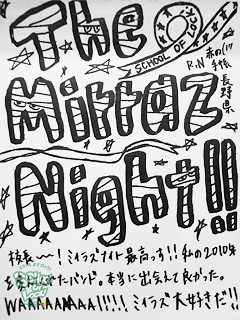 The
SCHOOL OF LOCK!
R.N 赤の
手帳
長野県
Mirraz
Night!!
校長〜!ミイラズナイト最高っす!!私の2010年
たバンド。本当に出会えて良かった。
WAAAAAAAA!!!!! ミイラズ大好きだ!!